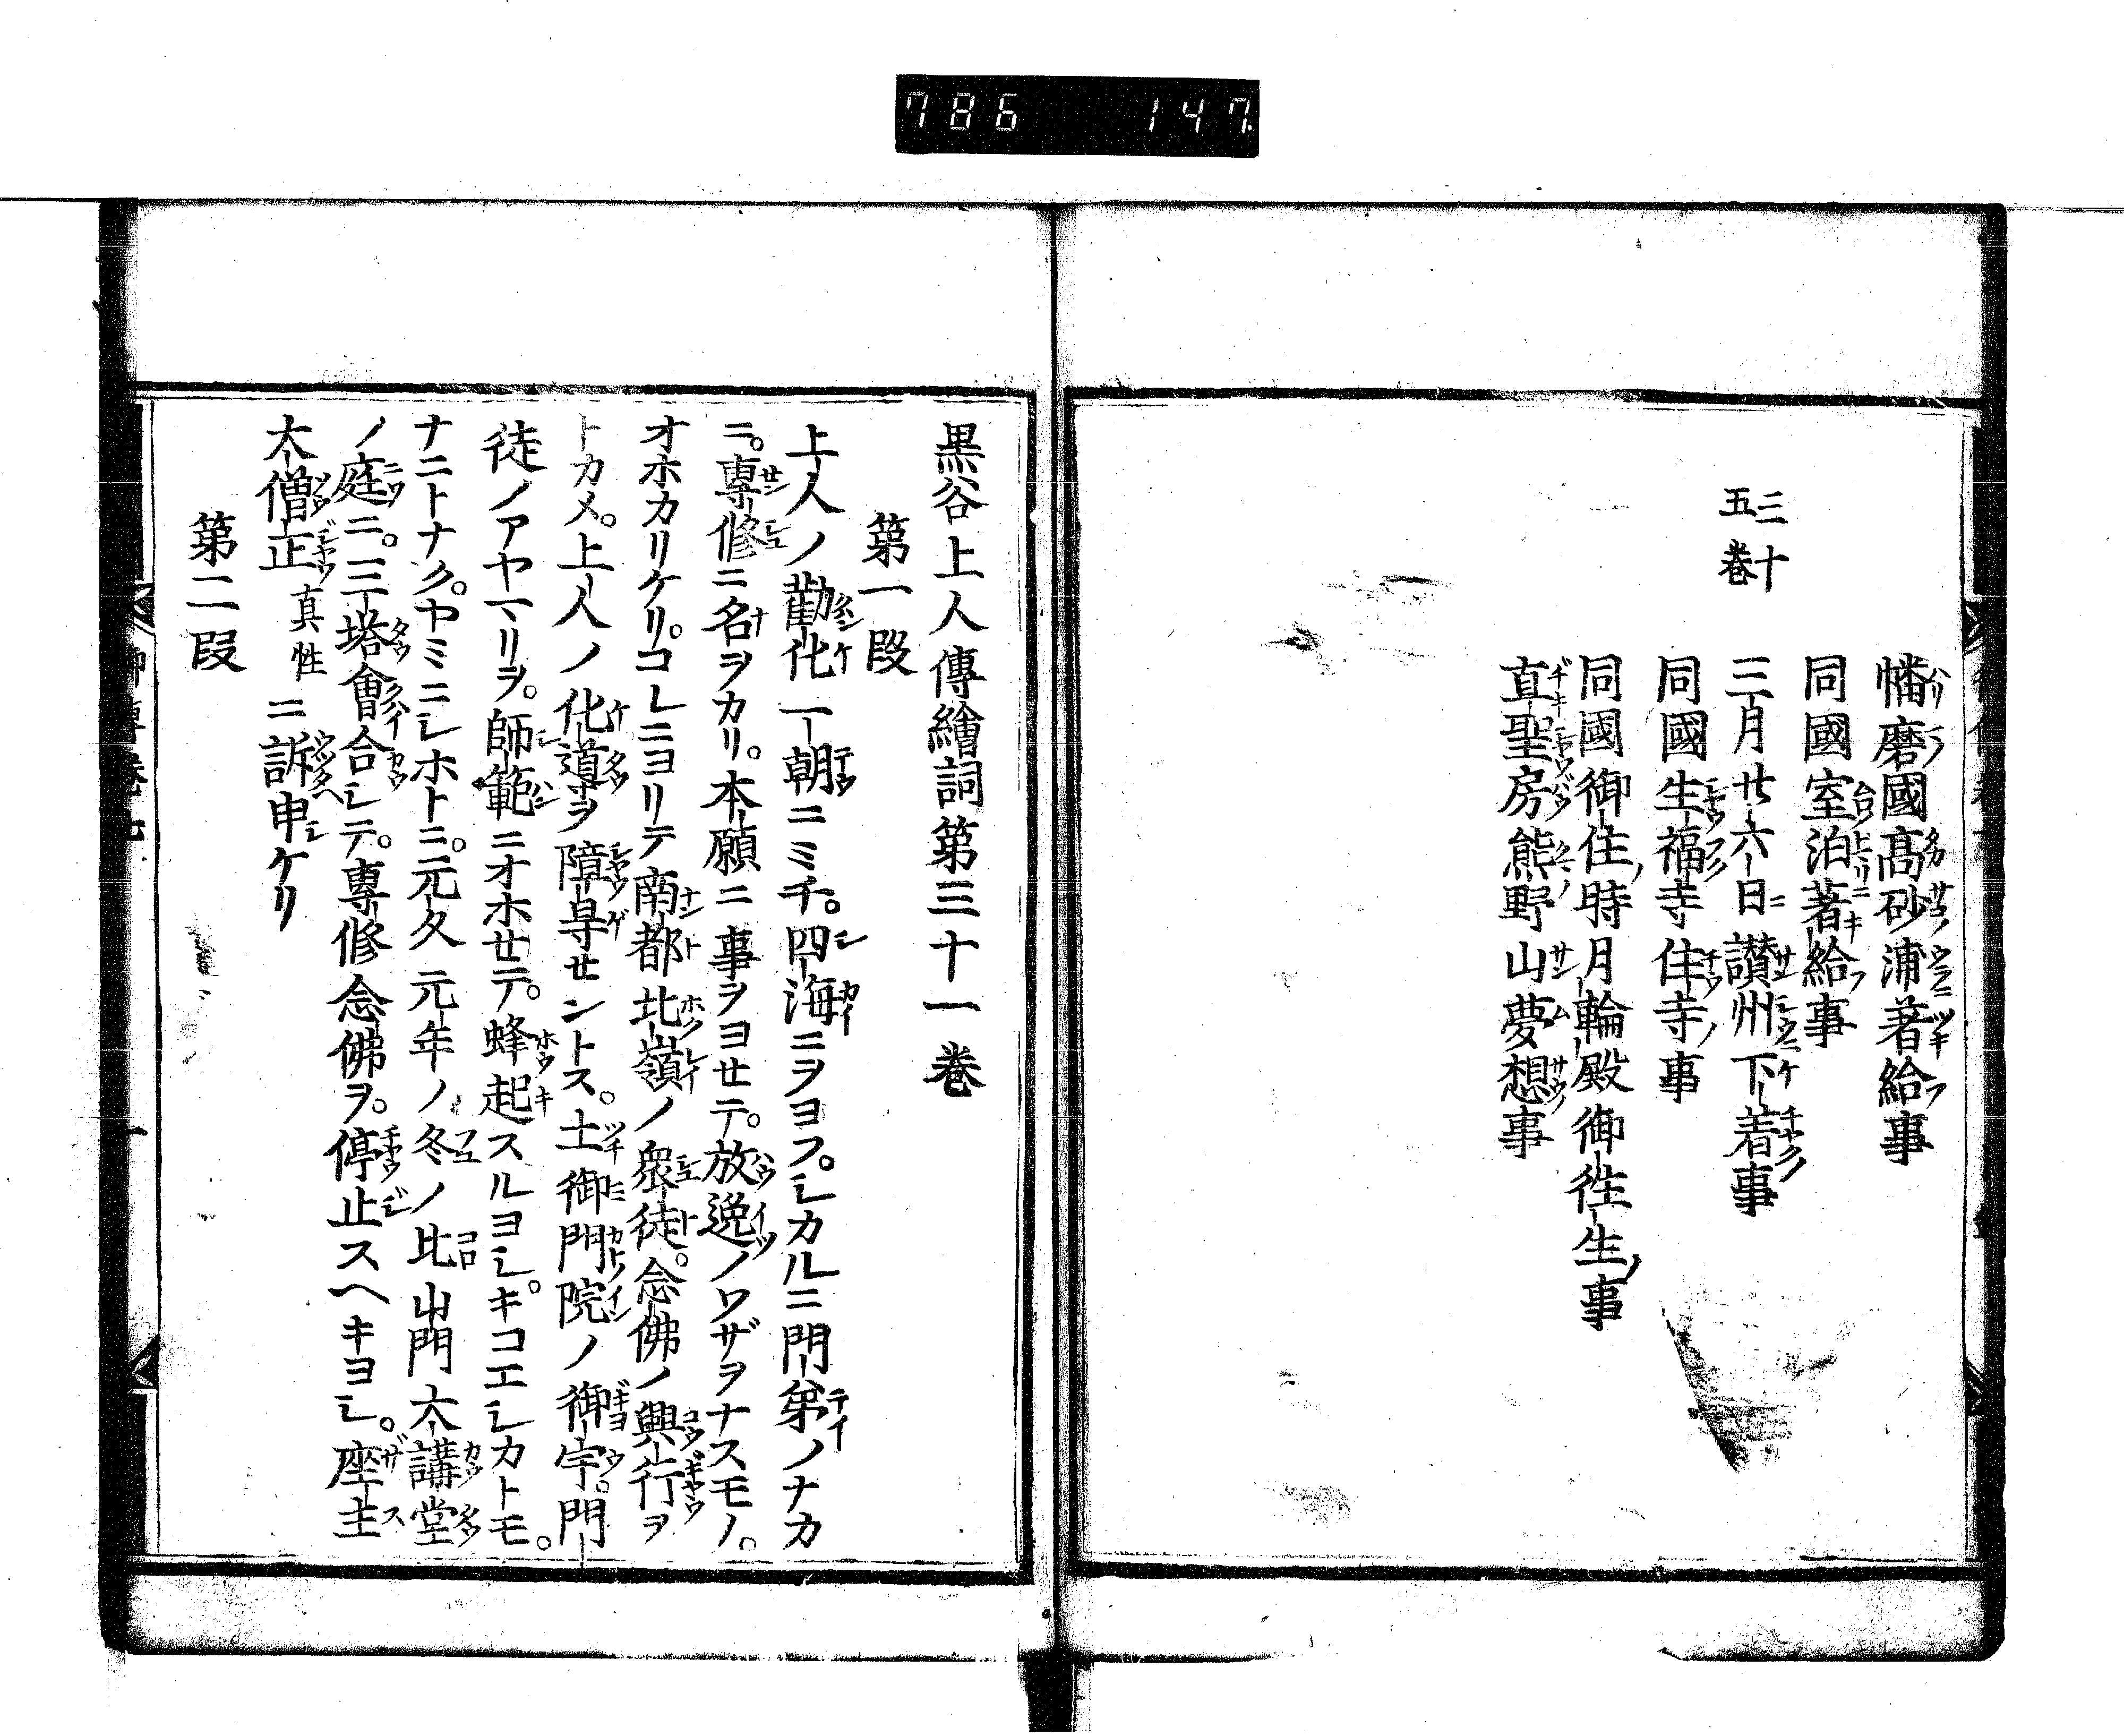 786 147
幡磨國髙砂浦著給事
同國室泊著給事
三十五巻
三月廿六日讃州下着事
同國生福寺住寺事
同國御住時月輪殿御徃生事
直聖房熊野山夢想事
黒谷上人傳繪詞第三十一巻
第一段
上人ノ勸化一朝ニミチ。四海ニヲヨフ。シカルニ門弟ノナカ
ニ。專修ニ名ヲカリ。本願ニ事ヲヨセテ。放逸ノワザヲナスモノ。
オホカリケリ。コレニヨリテ南都北嶺ノ衆徒。念佛ノ興行ヲ
トカメ。上人ノ化導ヲ障㝵セントス。土御門院ノ御宇。門
徒ノアヤマリヲ。師範ニオホセテ。蜂起スルヨシ。キコエシカトモ。
ナニトナク。ヤミニシホトニ。元久元年ノ冬ノ比山門大講堂
ノ庭ニ。三塔會合シテ。專修念佛ヲ。停止スヘキヨシ。座主
大僧正真性ニ訴申ケリ
第二段